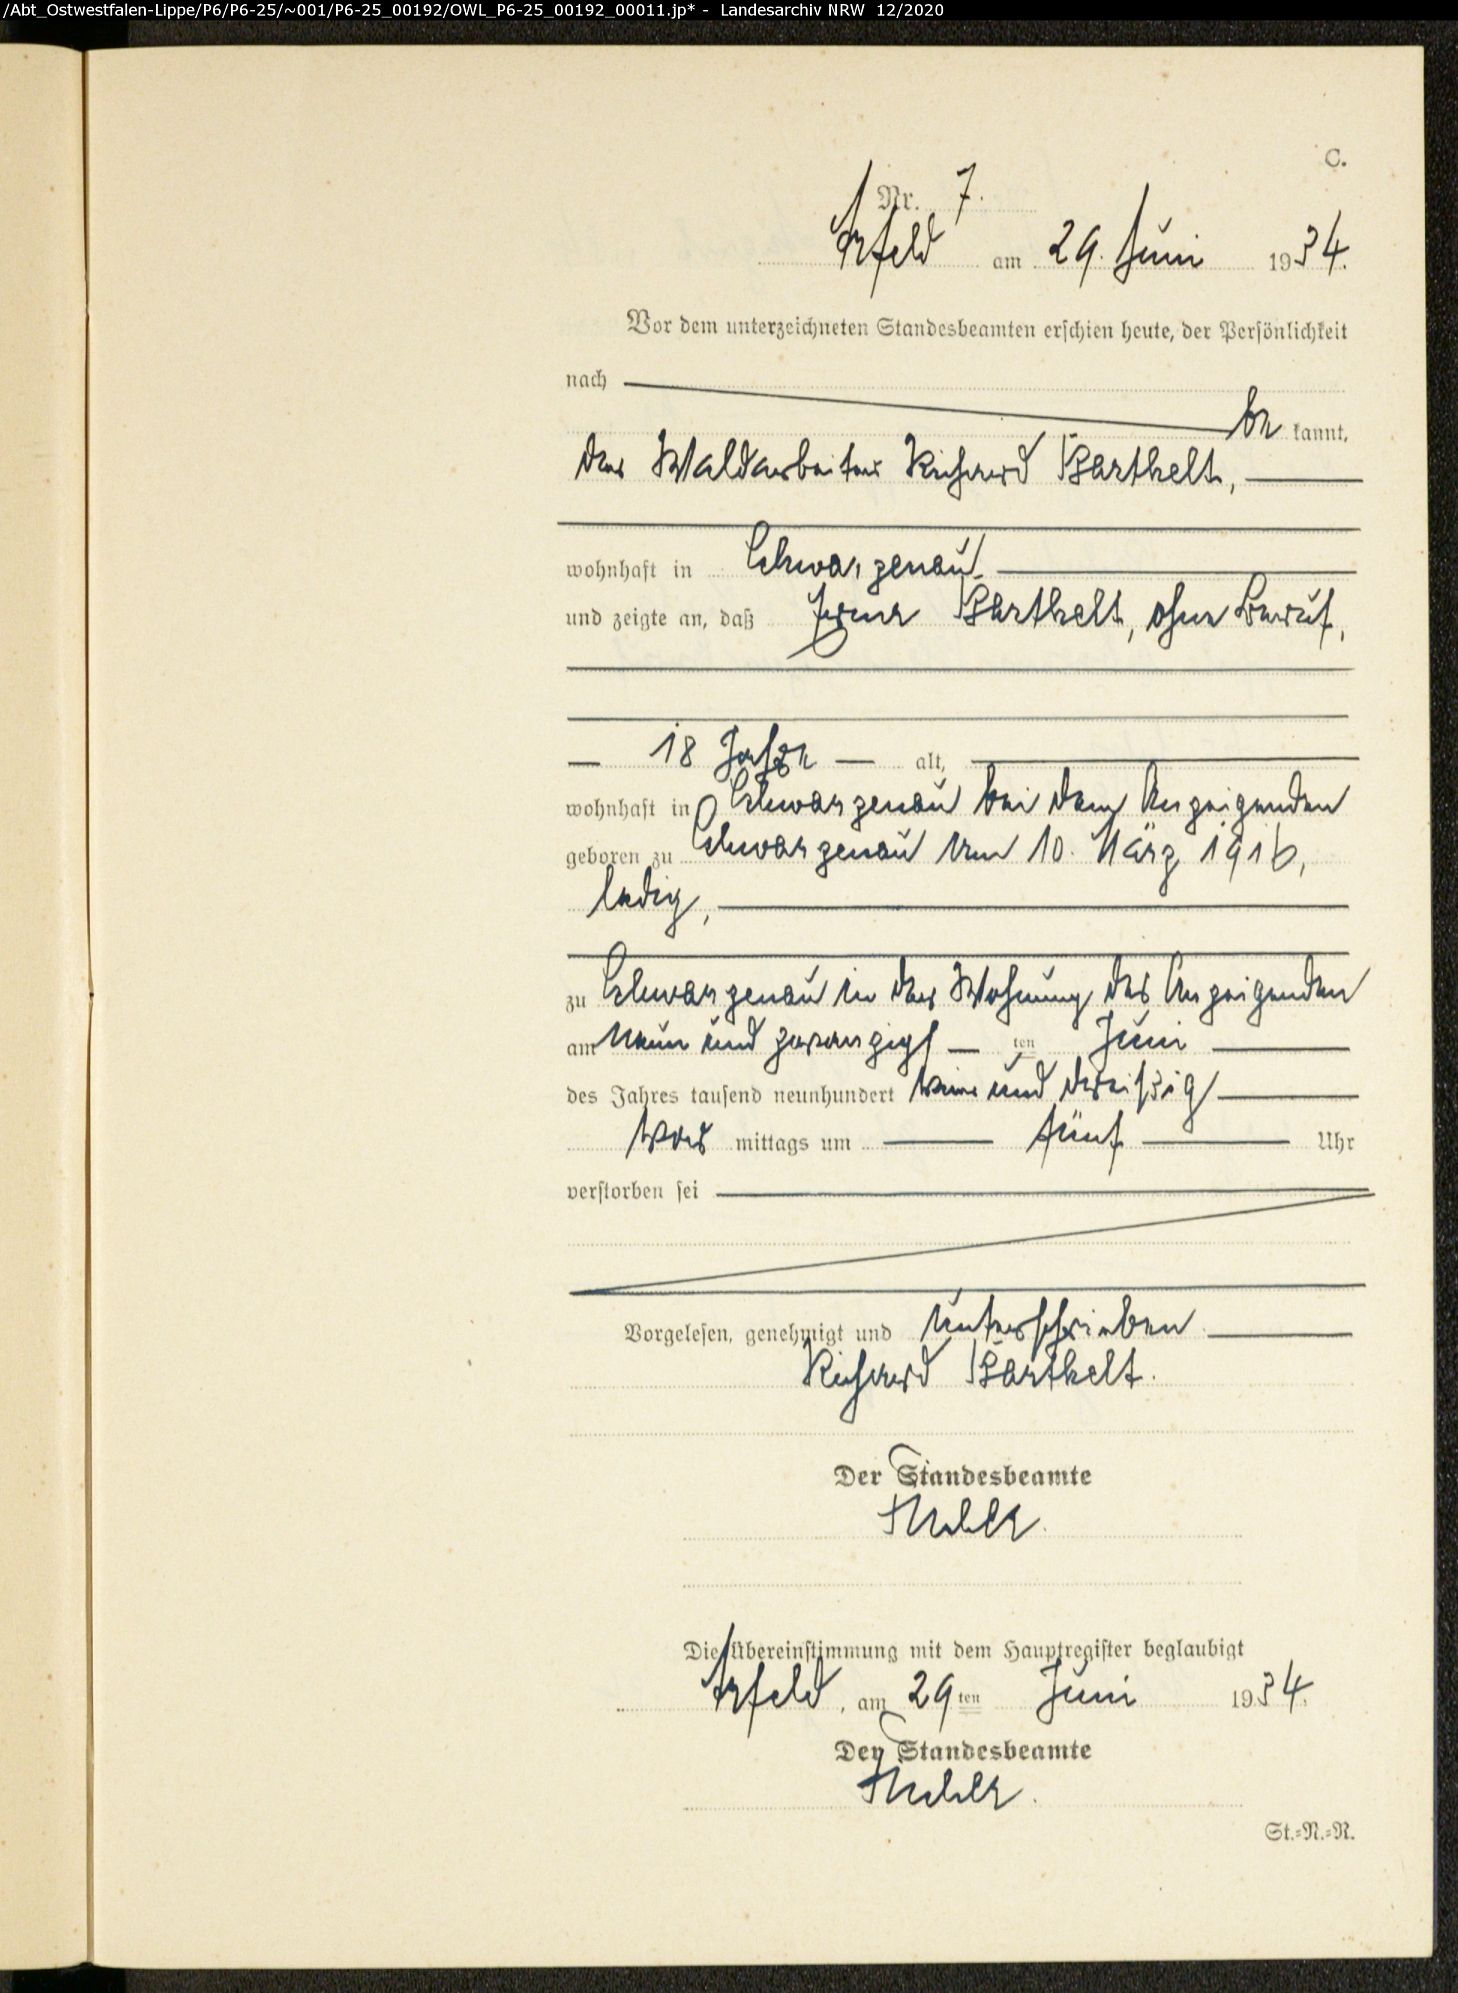 /Abt_Ostwestfalen-Lippe/P6/P6-25/~001/P6-25_00192/OWL_P6-25_00192_00011.jp* - Landesarchiv NRW 12/2020
C.
Nr. 7.
Arfeld am 29. Juni 1934.
Vor dem unterzeichneten Standesbeamten erschien heute, der Persönlichkeit
nach
be kannt,
der Waldarbeiter Richard Barthelt,
wohnhaft in Schwarzenau
und zeigte an, daß Erna Barthelt, ohne Beruf,
18 Jahre alt,
wohnhaft in Schwarzenau bei dem Anzeigenden
geboren zu Schwarzenau am 10. März 1916,
ledig,
zu Schwarzenau in der Wohnung des Anzeigenden
am neun und zwanzigst ten Juni
des Jahres tausend neunhundert vier und dreißig
Vor mittags um fünf Uhr
verstorben sei
Vorgelesen, genehmigt und unterschrieben
Richard Barthelt.
Der Standesbeamte
Die Übereinstimmung mit dem Hauptregister beglaubigt
Arfeld, am 29ten Juni 1934.
Der Standesbeamte
St.-N.-R.